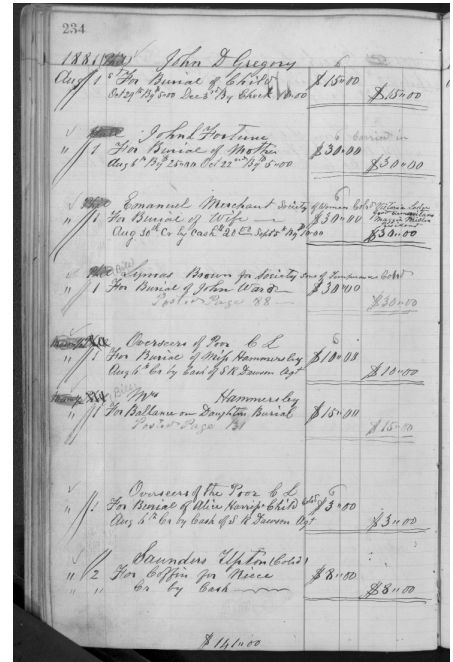 234
1881 John D Gregory
Aug 1 st For Burial of Child $15"00
Oct 29th By $5"00 Dec 3rd By Check 10"00 $15"00
John L Fortune
" 1 For Burial of Mother $30"00
Aug 6th By $25"00 Oct 22nd By $5"00 $30"00
Emanuel Merchant Society of Woman Cold
" 1 For Burial of Wife $30"00
Aug 30th Cr by Cash $20.00 Sept 5th By $10"00 $30"00
Brown for Society Sons of Cold
" 1 For Burial of John Ward $30"00
Posted Page 88 $30"00
Overseers of Poor C L
" 1 For Burial of Miss Hammersley $10"00
Aug 6th Cr by Cash of S R Dawson Agt $10"00
Mrs Hammersley
" 1 For Ballance on Daughters Burial $15"00
Posted Page 131 $15"00
Overseers of the Poor C L
" 1 For Burial of Alice Harris Child Cold $3"00
Aug 6th Cr by Cash of S R Dawson Agt $3"00
Saunders Upton (Cold)
" 2 For Coffin for Niece $8"00
" " Cr by Cash $8"00
$141"00